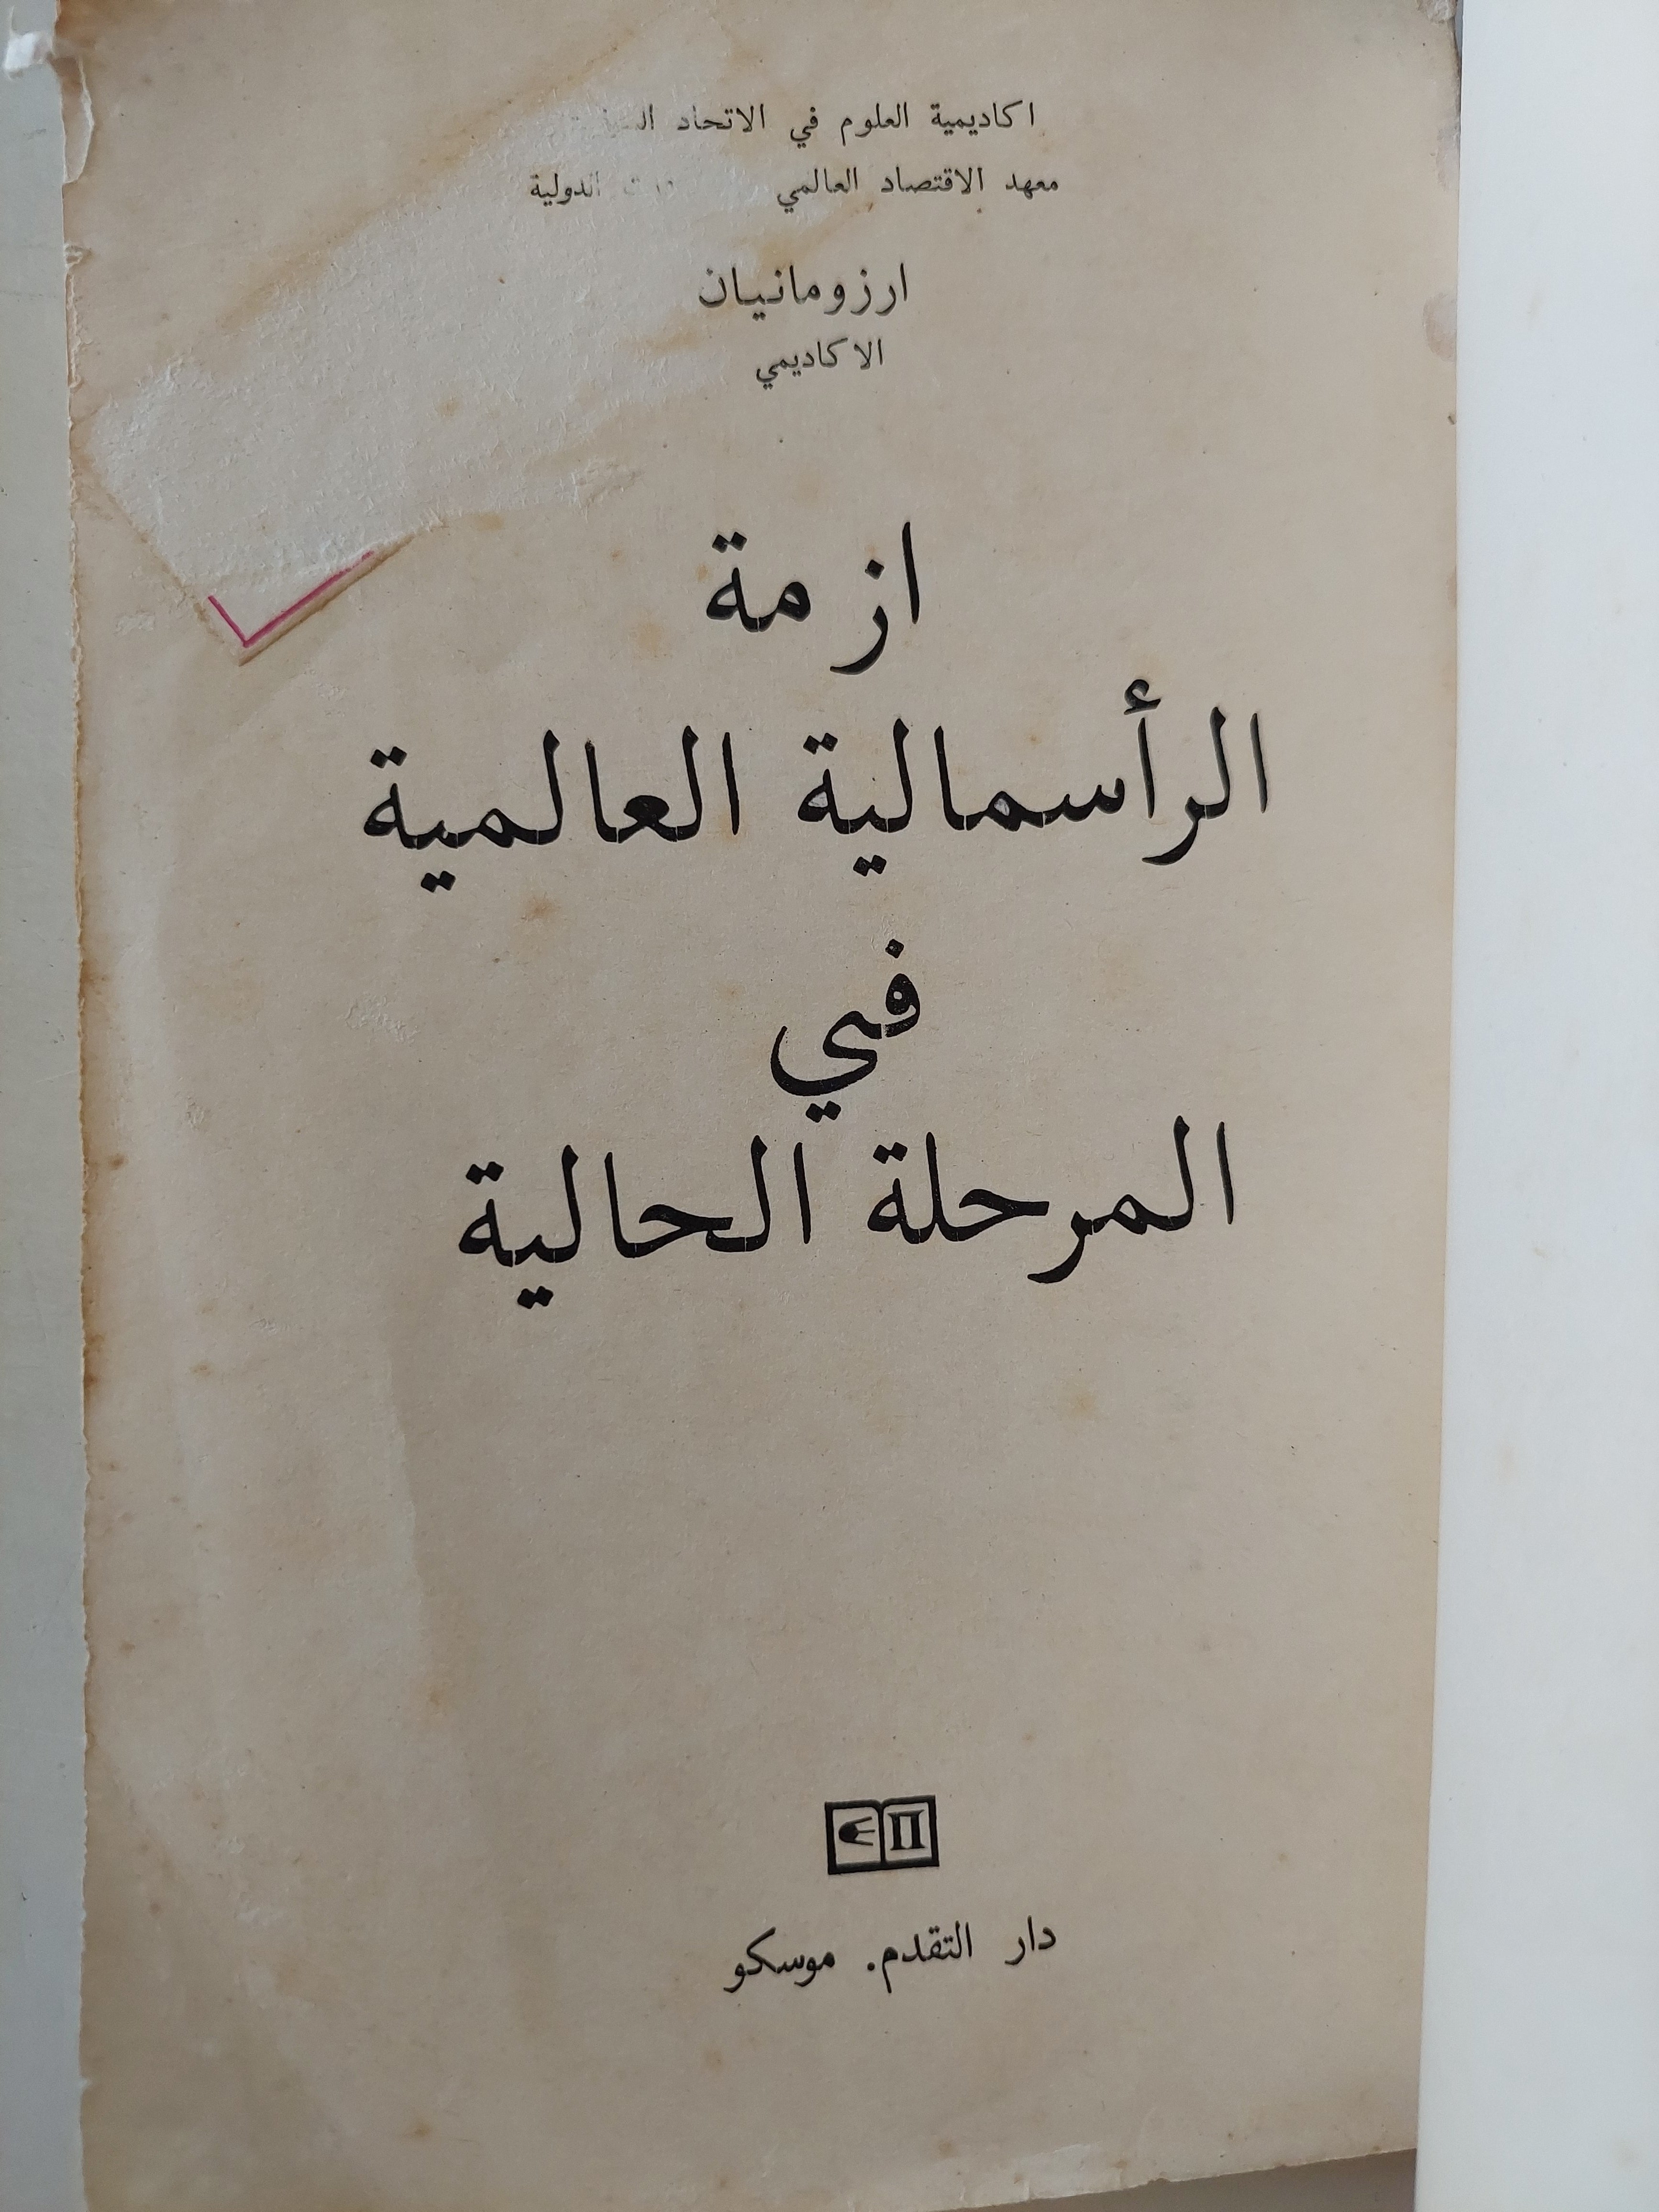 اكاديمية العلوم في الاتحاد
معهد الاقتصاد العالمي الدولية
ارزومانيان
الاكاديمي
ازمة
الرأسمالية العالمية
في
المرحلة الحالية
دار التقدم. موسكو